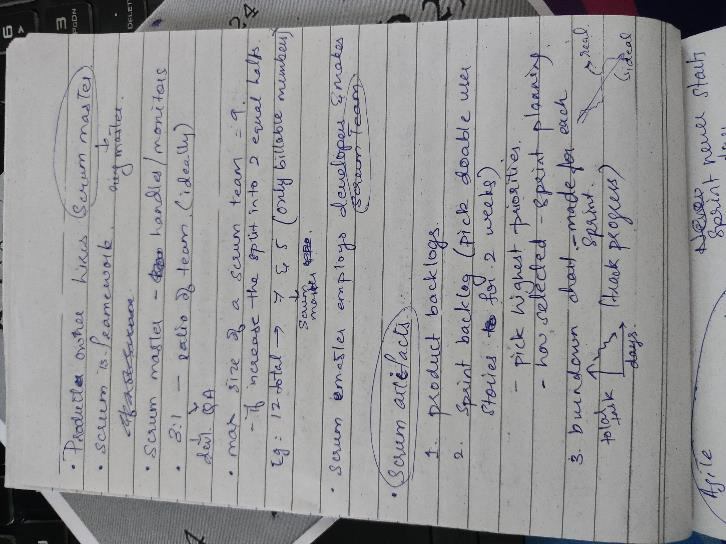 • Product owner hires Scrum master
• Scrum is framework. ring master.
• Scrum master - handles/monitors
• 3:1 — ratio of team. (ideally)
dev. QA
• max size of a scrum team = 9.
- if increase the split into 2 equal halfs
Eg: 12 total → 7 & 5 (only billable members)
Scrum master
• Scrum master employs developers & makes
Scrum Team
• Scrum artefacts
1. product backlogs.
2. Sprint backlog (pick doable user
stories for 2 weeks)
- pick highest priorities.
- how selected - sprint planning
3. burndown chart - made for each
sprint.
total task (track progress)
days.
real
ideal
Agile
Sprint never starts